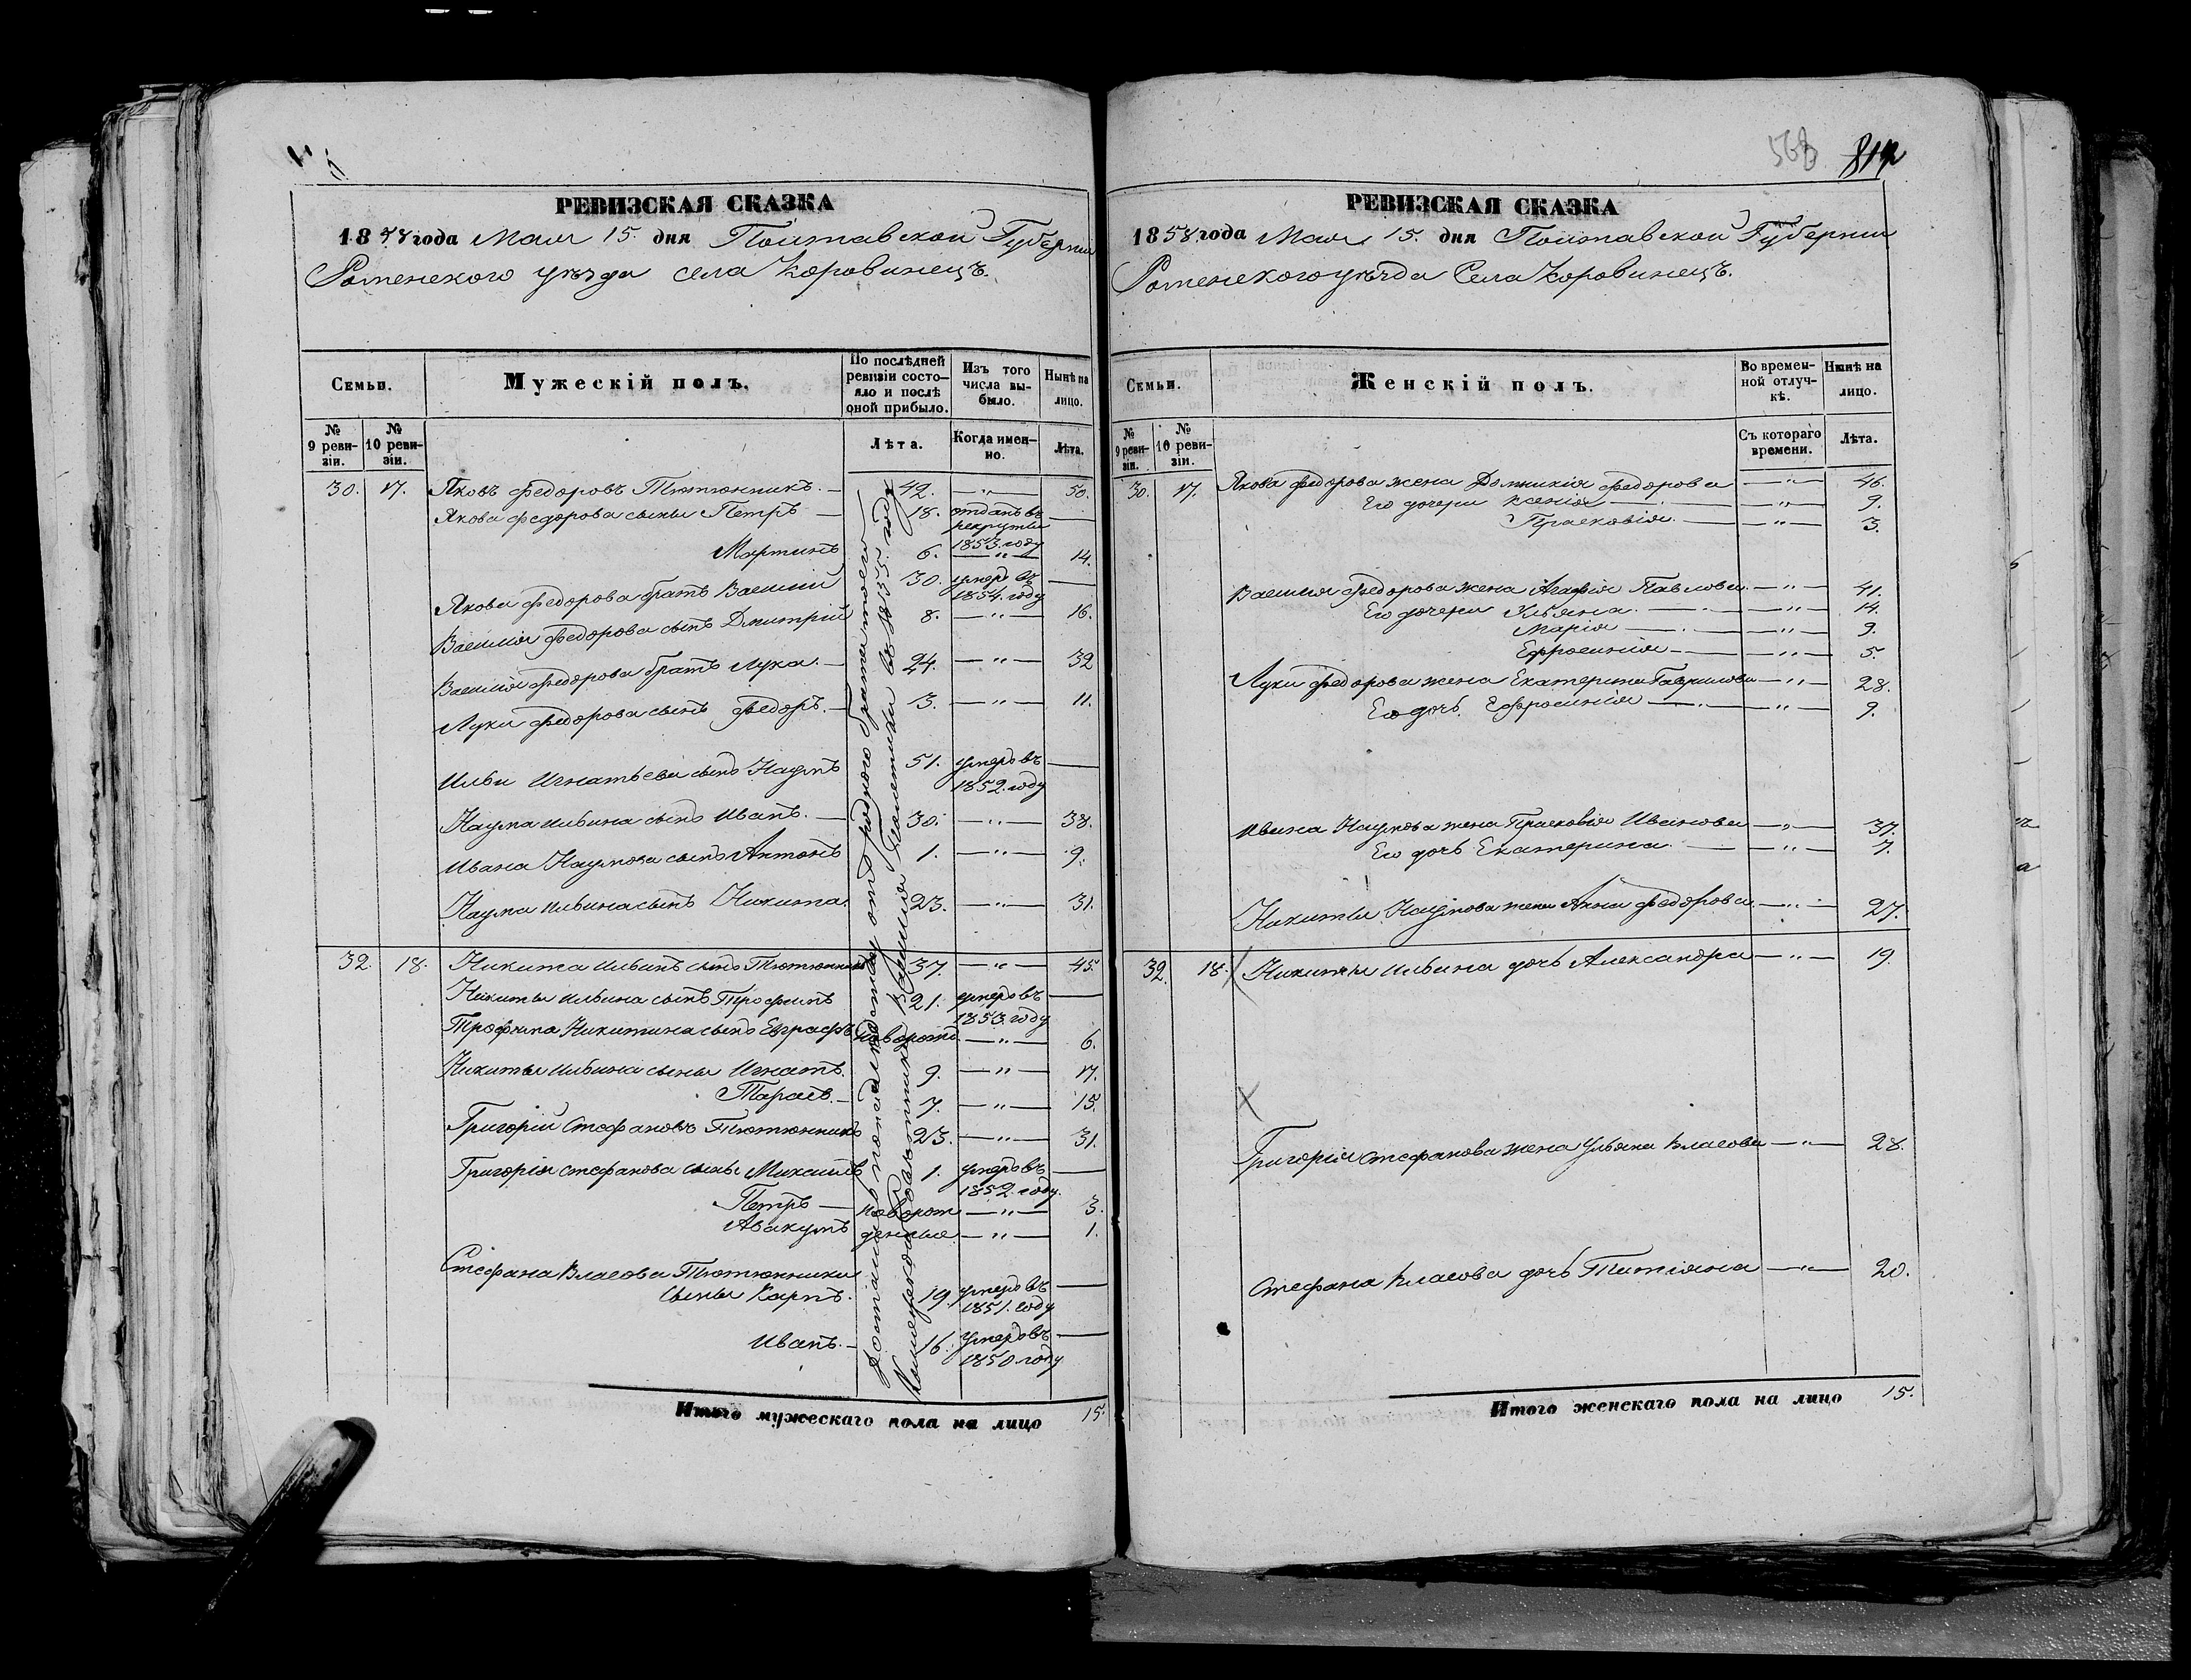 568 814
РЕВИЗСКАЯ СКАЗКА
1858 года Мая 15. дня Полтавской Губернии
Роменского уѣзда села Коровинецъ.
Семьи.
Мужескій полъ.
По послѣдней ревизіи состо-
яло и послѣ оной прибыло.
Изъ того числа вы-
было.
Нынѣ на лицо.
№ 9 реви-
зіи.
№ 10 реви-
зіи.
Лѣта.
Когда имен-
но.
Лѣта.
30. 17. Яковъ Федоровъ Тютюнникъ. — 42. — " — 50.
Якова Федорова сыны Петръ — 18. отданъ въ рекруты 1853. году —
Мартинъ 6. — " — 14.
Якова Федорова братъ Василий 30. умеръ въ 1854. году —
Василия Федорова сынъ Дмитрій 8. — " — 16.
Василия Федорова братъ Лука. — 24. — " — 32
Луки Федорова сынъ Федоръ. — 3. — " — 11.
Ильи Игнатьева сынъ Наумъ 51. умеръ въ 1852. году —
Наума Ильина сынъ Иванъ. — 30. — " — 38.
Ивана Наумова сынъ Антонъ 1. — " — 9.
Наума Ильина сынъ Никита. 23. — " — 31.
32. 18. Никита Ильинъ сынъ Тютюнникъ 37. — " — 45.
Никиты Ильина сынъ Трофимъ 21. умеръ въ 1853. году —
Трофима Никитина сынъ Евграфъ новорожд. — " — 6.
Никиты Ильина сыны Игнатъ. 9. — " — 17.
Тарасъ. — 7. — " — 15.
Григорій Стефановъ Тютюнникъ 23. — " — 31.
Григорія Стефанова сыны Михаилъ 1. умеръ въ 1852. году. —
Петръ — новорож — " — 3.
Авакумъ денные — " — 1.
Стефана Власова Тютюнника
сыны Карпъ. 19. умеръ въ 1851. году —
Иванъ. — 16. умеръ въ 1850. году —
отъ родного брата моего
Василия въ 1855. году
Итого мужескаго пола на лицо 15.
РЕВИЗСКАЯ СКАЗКА
1858 года Мая 15. дня Полтавской Губернии
Роменского уѣзда Села Коровинецъ.
Семьи.
Женскій полъ.
Во времен-
ной отлуч-
кѣ.
Нынѣ на лицо.
№ 9 реви-
зіи.
№ 10 реви-
зіи.
Съ котораго времени.
Лѣта.
30. 17. Якова Федорова жена Домникія Федорова — " — 46.
Его дочери Ксенія — " — 9.
Прасковія. — " — 3.
Василия Федорова жена Агафія Павлова — " — 41.
Его дочери Ульяна. — " — 14.
Марія — " — 9.
Ефросинія — " — 5.
Луки Федорова жена Екатерина Гаврилова — " — 28.
Его дочь. Ефросинія — " — 9.
Ивана Наумова жена Прасковія Иванова — " — 37.
Его дочь Екатерина. — " — 7.
Никиты Наумова жена Анна Федорова — " — 27.
32. 18. Никиты Ильина дочь Александра — " — 19.
Григорія Стефанова жена Ульяна Власова — " — 28.
Стефана Власова дочь Татіяна — " — 20.
Итого женскаго пола на лицо 15.